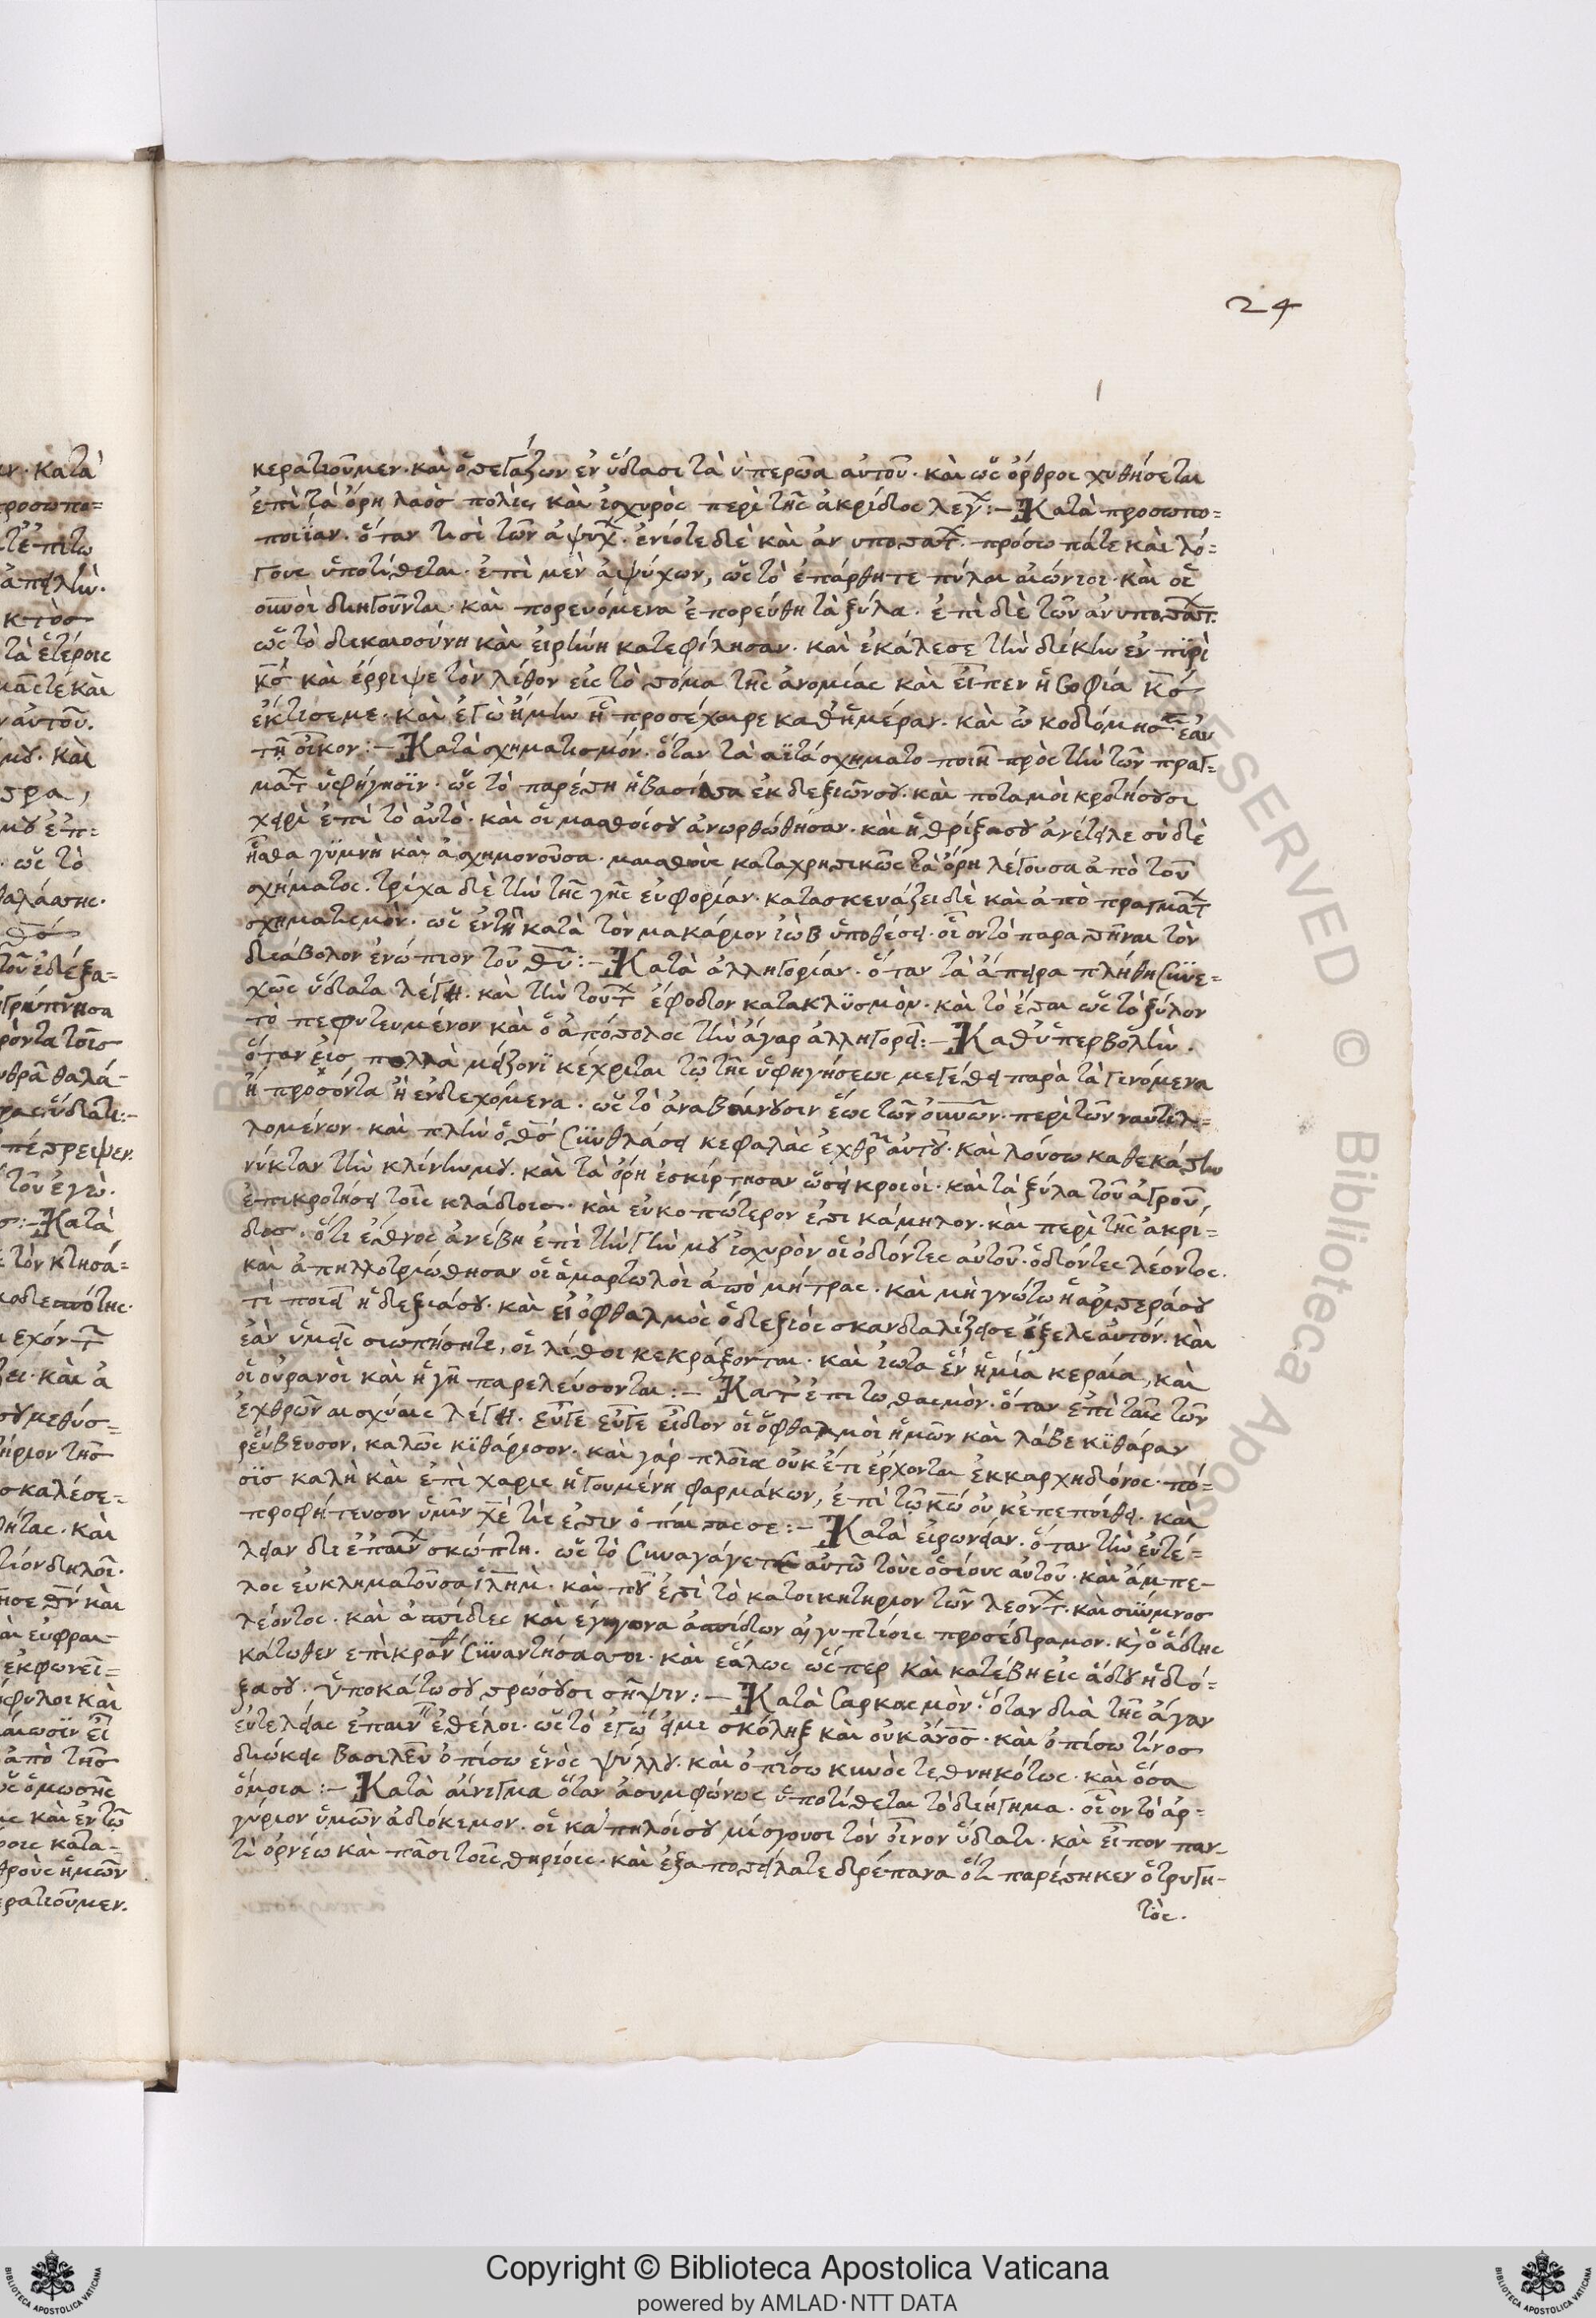 24
κερατιοῦμεν· καὶ ὁ στεγάζων ἐν ὕδασι τὰ ὑπερῶα αὐτοῦ· καὶ ὡς ὄρθρος χυθήσεται
ἐπὶ τὰ ὄρη λαὸσ πολὺς καὶ ἰσχυρὸς περὶ τῆς ἀκρίδος λεγ:– Κατὰ προσωπο=
ποιΐαν· ὅταν τισὶ τῶν ἀψύχ· ἐνίοτε δὲ καὶ ἀνυποστατ· πρόσωπάτε καὶ λό=
γους ὑποτίθεται· ἐπὶ μὲν ἀψύχων, ὡς τὸ ἐπάρθητε πύλαι αἰώνιοι· καὶ οἱ
οὐνοὶ διηγοῦνται· καὶ πορευόμενα ἐπορεύθη τὰ ξύλα· ἐπὶ δὲ τῶν ἀνυποστατ·
ὡς τὸ δικαιοσύνη καὶ εἰρήνη κατεφίλησαν· καὶ ἐκάλεσε τὴν δίκην ἐν πϊρὶ
κσ καὶ ἔρριψε τὸν λίθον εἰς τὸ στόμα τῆς ἀνομίας καὶ εἶπεν ἡ σοφία κσ
ἐκτισεμε· καὶ ἐγὼ ἤμην ἧ προσέχαιρε καθ' ἡμέραν· καὶ ὠκοδόμησεν ἑαυ
τῇ οἶκον:– Κατὰ σχηματισμόν· ὅταν τὰ αϊτάσχηματο ποιῆ πρὸς τὴν τῶν πραγ=
ματ ὑφήγησϊν· ὡς τὸ παρέστη ἡ βασίλισσα ἐκ δεξιῶνσου· καὶ ποταμοὶ κροτήσουσι
χειρὶ ἐπὶ τὸ αὐτό· καὶ οἱ μασθοίσου ἀνωρθώθησαν· καὶ ἡ θρίξσου ἀνέτειλε σὺ δὲ
ἦσθα γϋμνὴ καὶ ἀσχημονοῦσα· μασθοὺς καταχρηστικῶς τὰ ὄρη λέγουσα ἀπὸ τοῦ
σχήματος· τρίχα δὲ τὴν τῆς γῆς εὐφορίαν· κατασκευάζει δὲ καὶ ἀπὸ πραγματ
σχηματισμὸν· ὡς ἐν τῆ κατὰ τὸν μακάριον ἰὼβ ὑποθέσει· οἷον τὸ παραστῆναι τὸν
διάβολον ἐνώπιον τοῦ θυ:– Κατὰ ἀλληγορίαν· ὅταν τὰ ἄπειρα πλήθη σϋνε=
χῶς ὕδατα λέγη· καὶ τὴν τουτ ἔφοδον κατακλϋσμὸν· καὶ τὸ ἔσται ὡς τὸ ξύλον
τὸ πεφυτευμένον καὶ ὁ ἀπόστολος τὴν ἄγαρ ἀλληγορεῖ:– Καθ' ὑπερβολὴν·
ὅταν εἰσ πολλὰ μείζονϊ κέχρηται τῷ τῆς ὑφηγήσεως μεγέθει παρὰ τὰ γινόμενα
ἢ προσόντα ἢ ἐνδεχόμενα· ὡς τὸ ἀναβαίνουσιν ἕως τῶν οὐνῶν· περὶ τῶν ναυτιλ=
λομένων· καὶ πλὴν ὁ θσ σϋνθλάσει κεφαλὰς ἐχθρῶν αὐτοῦ· καὶ λούσω καθεκάστην
νύκταν τὴν κλίνηνμου· καὶ τὰ ὄρη ἐσκίρτησαν ὡσεὶ κριοί· καὶ τὰ ξύλα τοῦ ἀγροῦ
ἐπικροτήσει τοῖς κλάδοις· καὶ εὐκοπώτερον ἐστι κάμηλον· καὶ περὶ τῆς ἀκρί=
δοσ· ὅτι ἔθνος ἀνέβη ἐπὶ τὴν γῆν μου ἰσχυρὸν οἱ ὀδόντες αὐτοῦ· ὀδόντες λέοντος·
καὶ ἀπηλλοτριώθησαν οἱ ἁμαρτωλοὶ ἀπὸ μήτρας· καὶ μὴ γνώτω ἡ ἀριστεράσου
τί ποιεῖ ἡ δεξιάσου· καὶ εἰ ὀφθαλμὸς ὁ δεξιός σκανδαλίζεισε ἔξελε αὐτόν· καὶ
ἐὰν ὑμεῖς σιωπήσητε, οἱ λίθοι κεκράξονται· καὶ ἰῶτα ἓν ἢ μία κεραία, καὶ
οἱ οὐρανοὶ καὶ ἡ γῆ παρελεύσονται:– Κατ' ἐπιτωθασμὸν· ὅταν ἐπὶ ταῖς τῶν
ἐχθρῶν αισχύνις λέγη· εὖγε εὖγε εἶδον οἱ ὀφθαλμοὶ ἡμῶν καὶ λάβε κϊθάραν
ῥέμβευσον, καλῶς κϊθάρισον· καὶ γάρ πλοῖα οὐκ ἔτι ἔρχονται ἐκ καρχηδόνος· πό=
σϊσ καλὴ καὶ ἐπὶ χαρις ἡγουμένη φαρμάκων, ἐπὶ τῷ κω οὐκ ἐπεποίθει· καὶ
προφήτευσον ὑμῖν χε τίς ἐστιν ὁ παίσας σε:– Κατὰ εἰρωνείαν· ὅταν τὴν εὐτέ=
λειαν δι ἐπαιν σκώπτη· ὡς τὸ συναγάγετε αὐτῶ τοὺς ὁσίους αὐτοῦ· καὶ ἄμπε-
λος εὐκληματοῦσα ιλημ· καὶ ποῦ ἐστὶ τὸ κατοικητηριον τῶν λεοντ· καὶ σκύμνοσ
λέοντος· καὶ ἀσπίδες καὶ ἔγγονα ἀσπίδων αἰγυπτίοις προσέδραμον· κ ὁ ἅδης
κάτωθεν ἐπικράνθη σϋναντήσας σοι· καὶ ἑάλως ὥσπερ καὶ κατέβη εἰς ἅδου ἡ δό=
ξασου· ὑποκάτω σου στρώσουσι σῆψιν:– Κατὰ σαρκασμὸν· ὅταν διὰ τῆς ἄγαν
εὐτελείας ἐπαιν ἐθέλοι· ὡς τὸ ἐγὼ εἰμι σκόληξ καὶ οὐκ ἄνοσ· καὶ ὀπίσω τίνοσ
διώκεις βασιλεῦ ὀπίσω ἑνὸς ψύλλου· καὶ ὀπίσω κυνὸς τεθνηκότως· καὶ ὅσα
ὅμοια:– Κατὰ αἴνιγμα ὅταν ἀσυμφώνως ὑποτίθεται τὸ διήγημα· οἷον τὸ ἀρ-
γύριον ὑμῶν ἀδόκιμον· οἱ κάπηλοίσου μίσγουσι τὸν οἶνον ὕδατι· καὶ εἶπον παν-
τὶ ὀρνέω καὶ πᾶσι τοῖς θηρίοις· καὶ ἐξαποστείλατε δρέπανα ὅτ παρέστηκεν ὁ τρυγη-
τὸς·
Copyright © Biblioteca Apostolica Vaticana
powered by AMLAD·NTT DATA